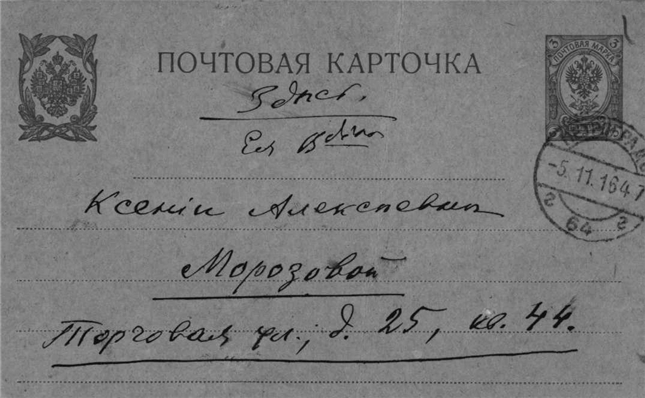 ПОЧТОВАЯ КАРТОЧКА
ПОЧТОВАЯ МАРКА
3
Здѣсь.
Ея В
Ксеніи Алексѣевнѣ
Морозовой
Торговая ул., д. 25, кв. 44.
ПЕТРОГРАДЪ
-5.11.16 4 7
2 64 2